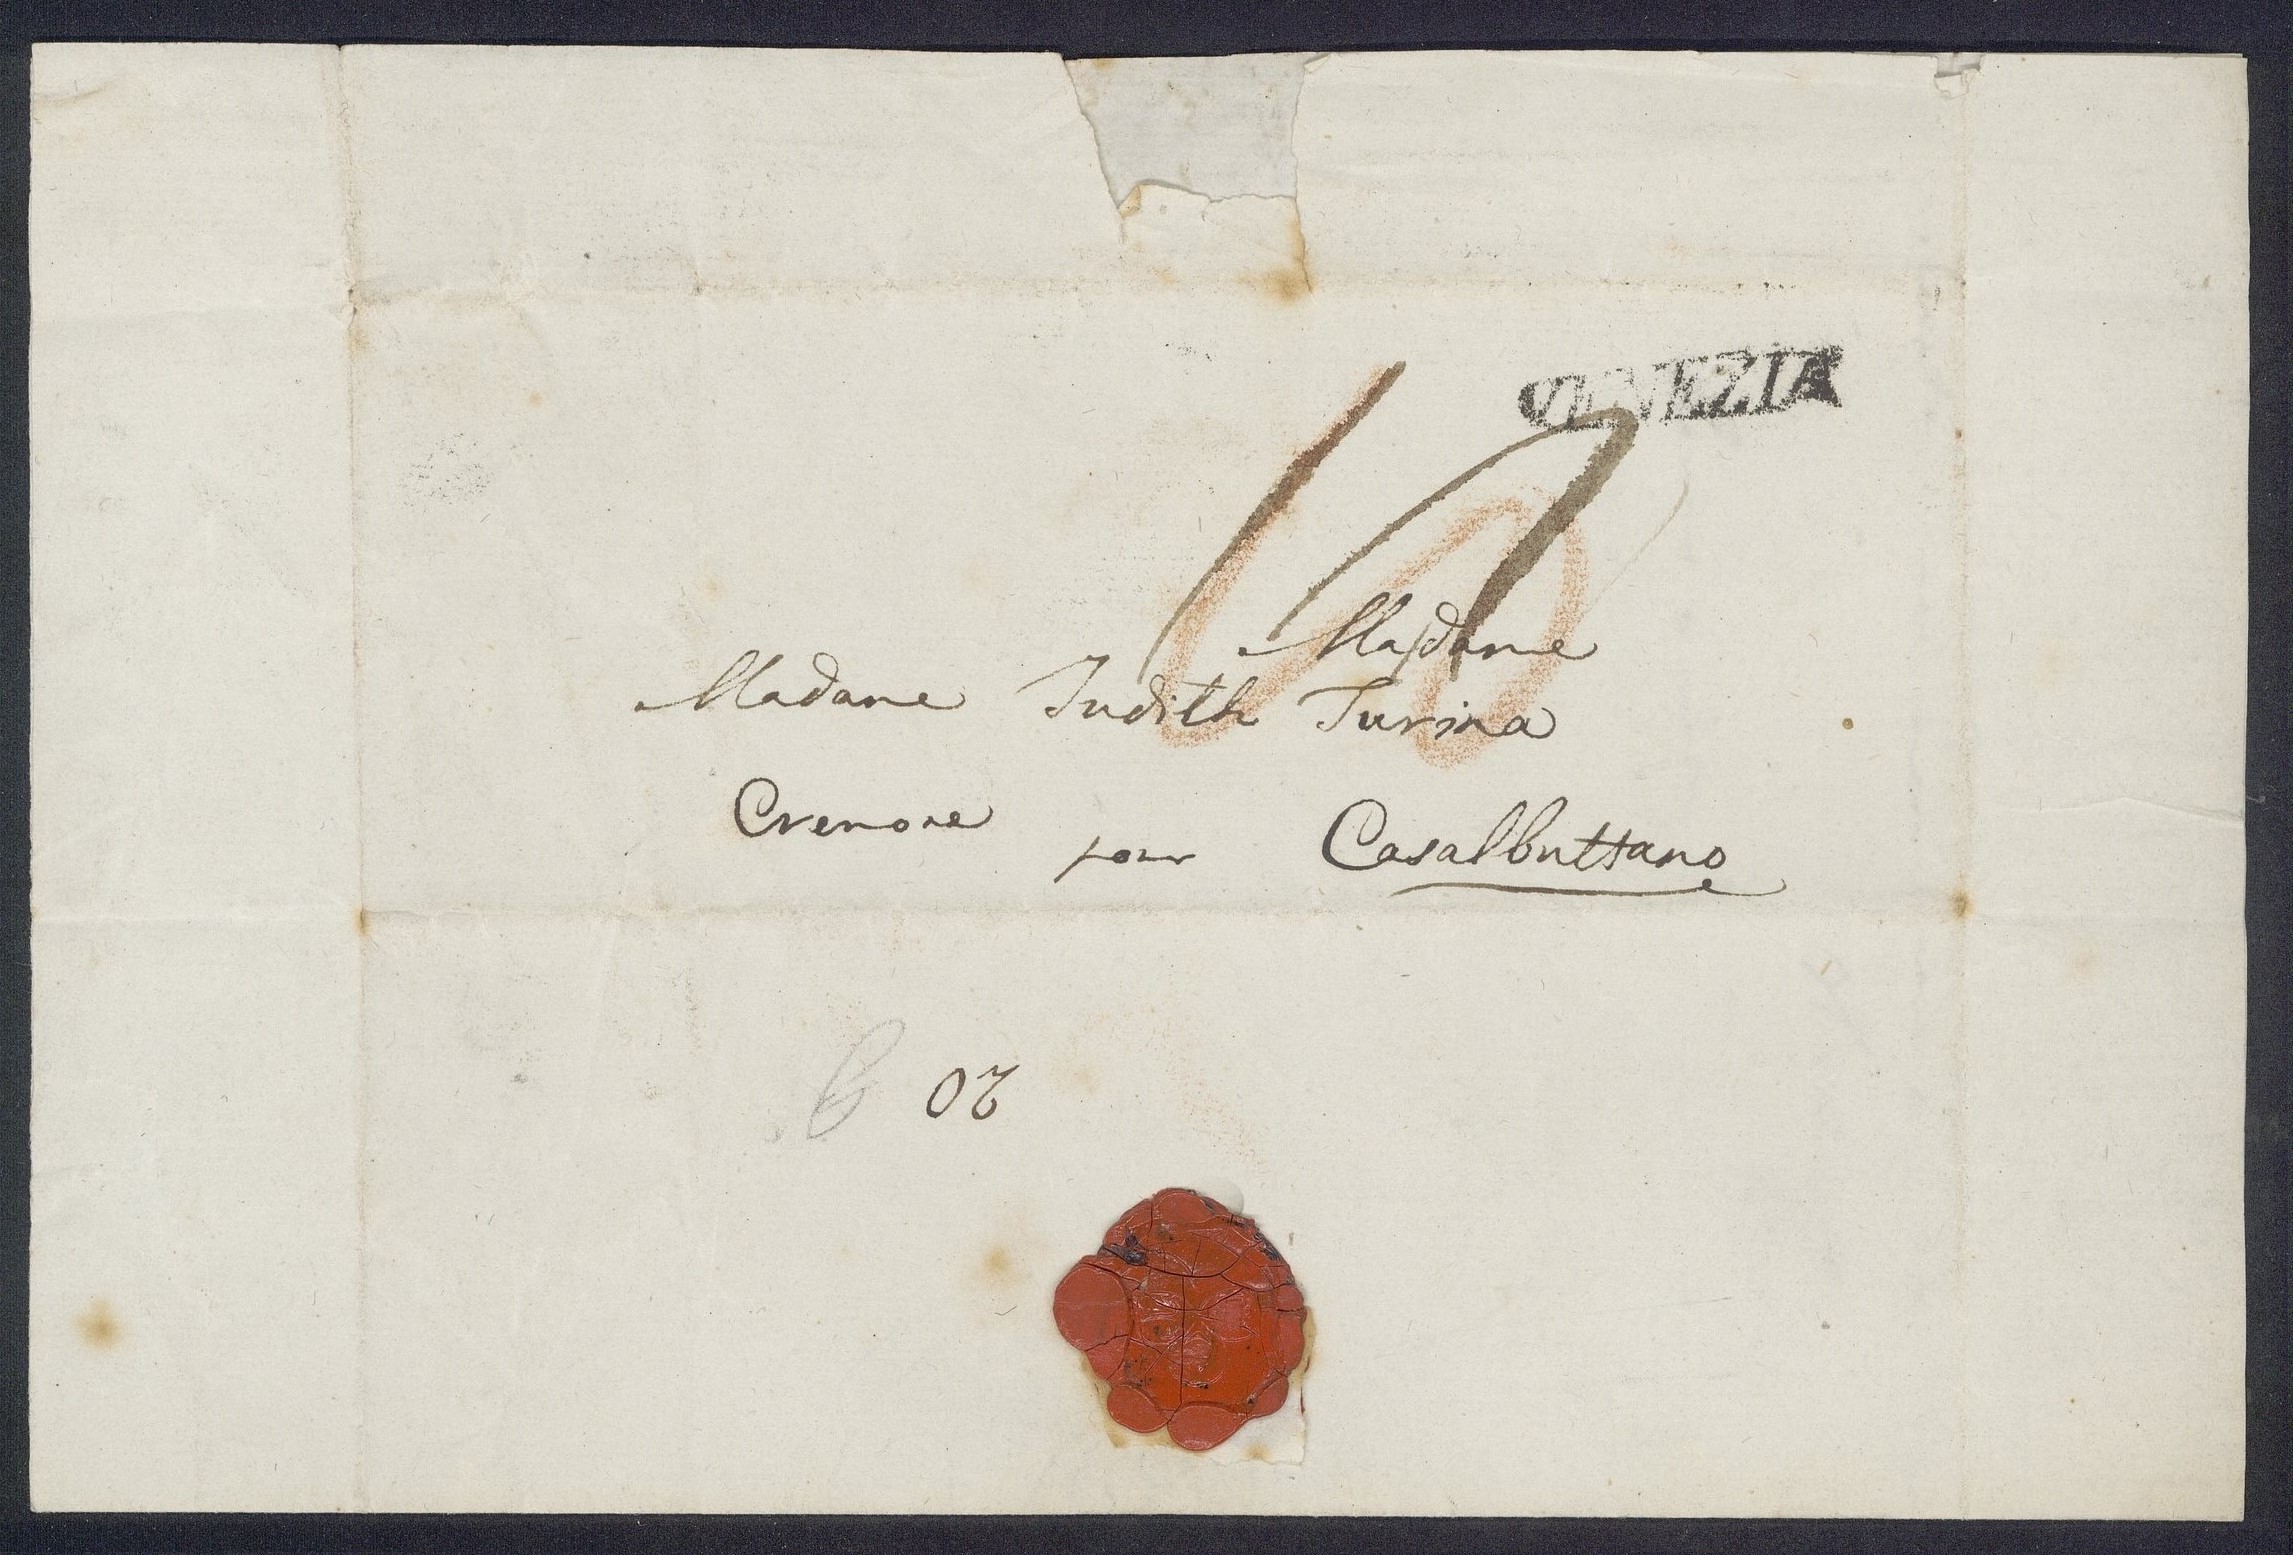 VENEZIA
10
Madame
Madame Judith Turina
Cremone
pour Casalbuttano
20